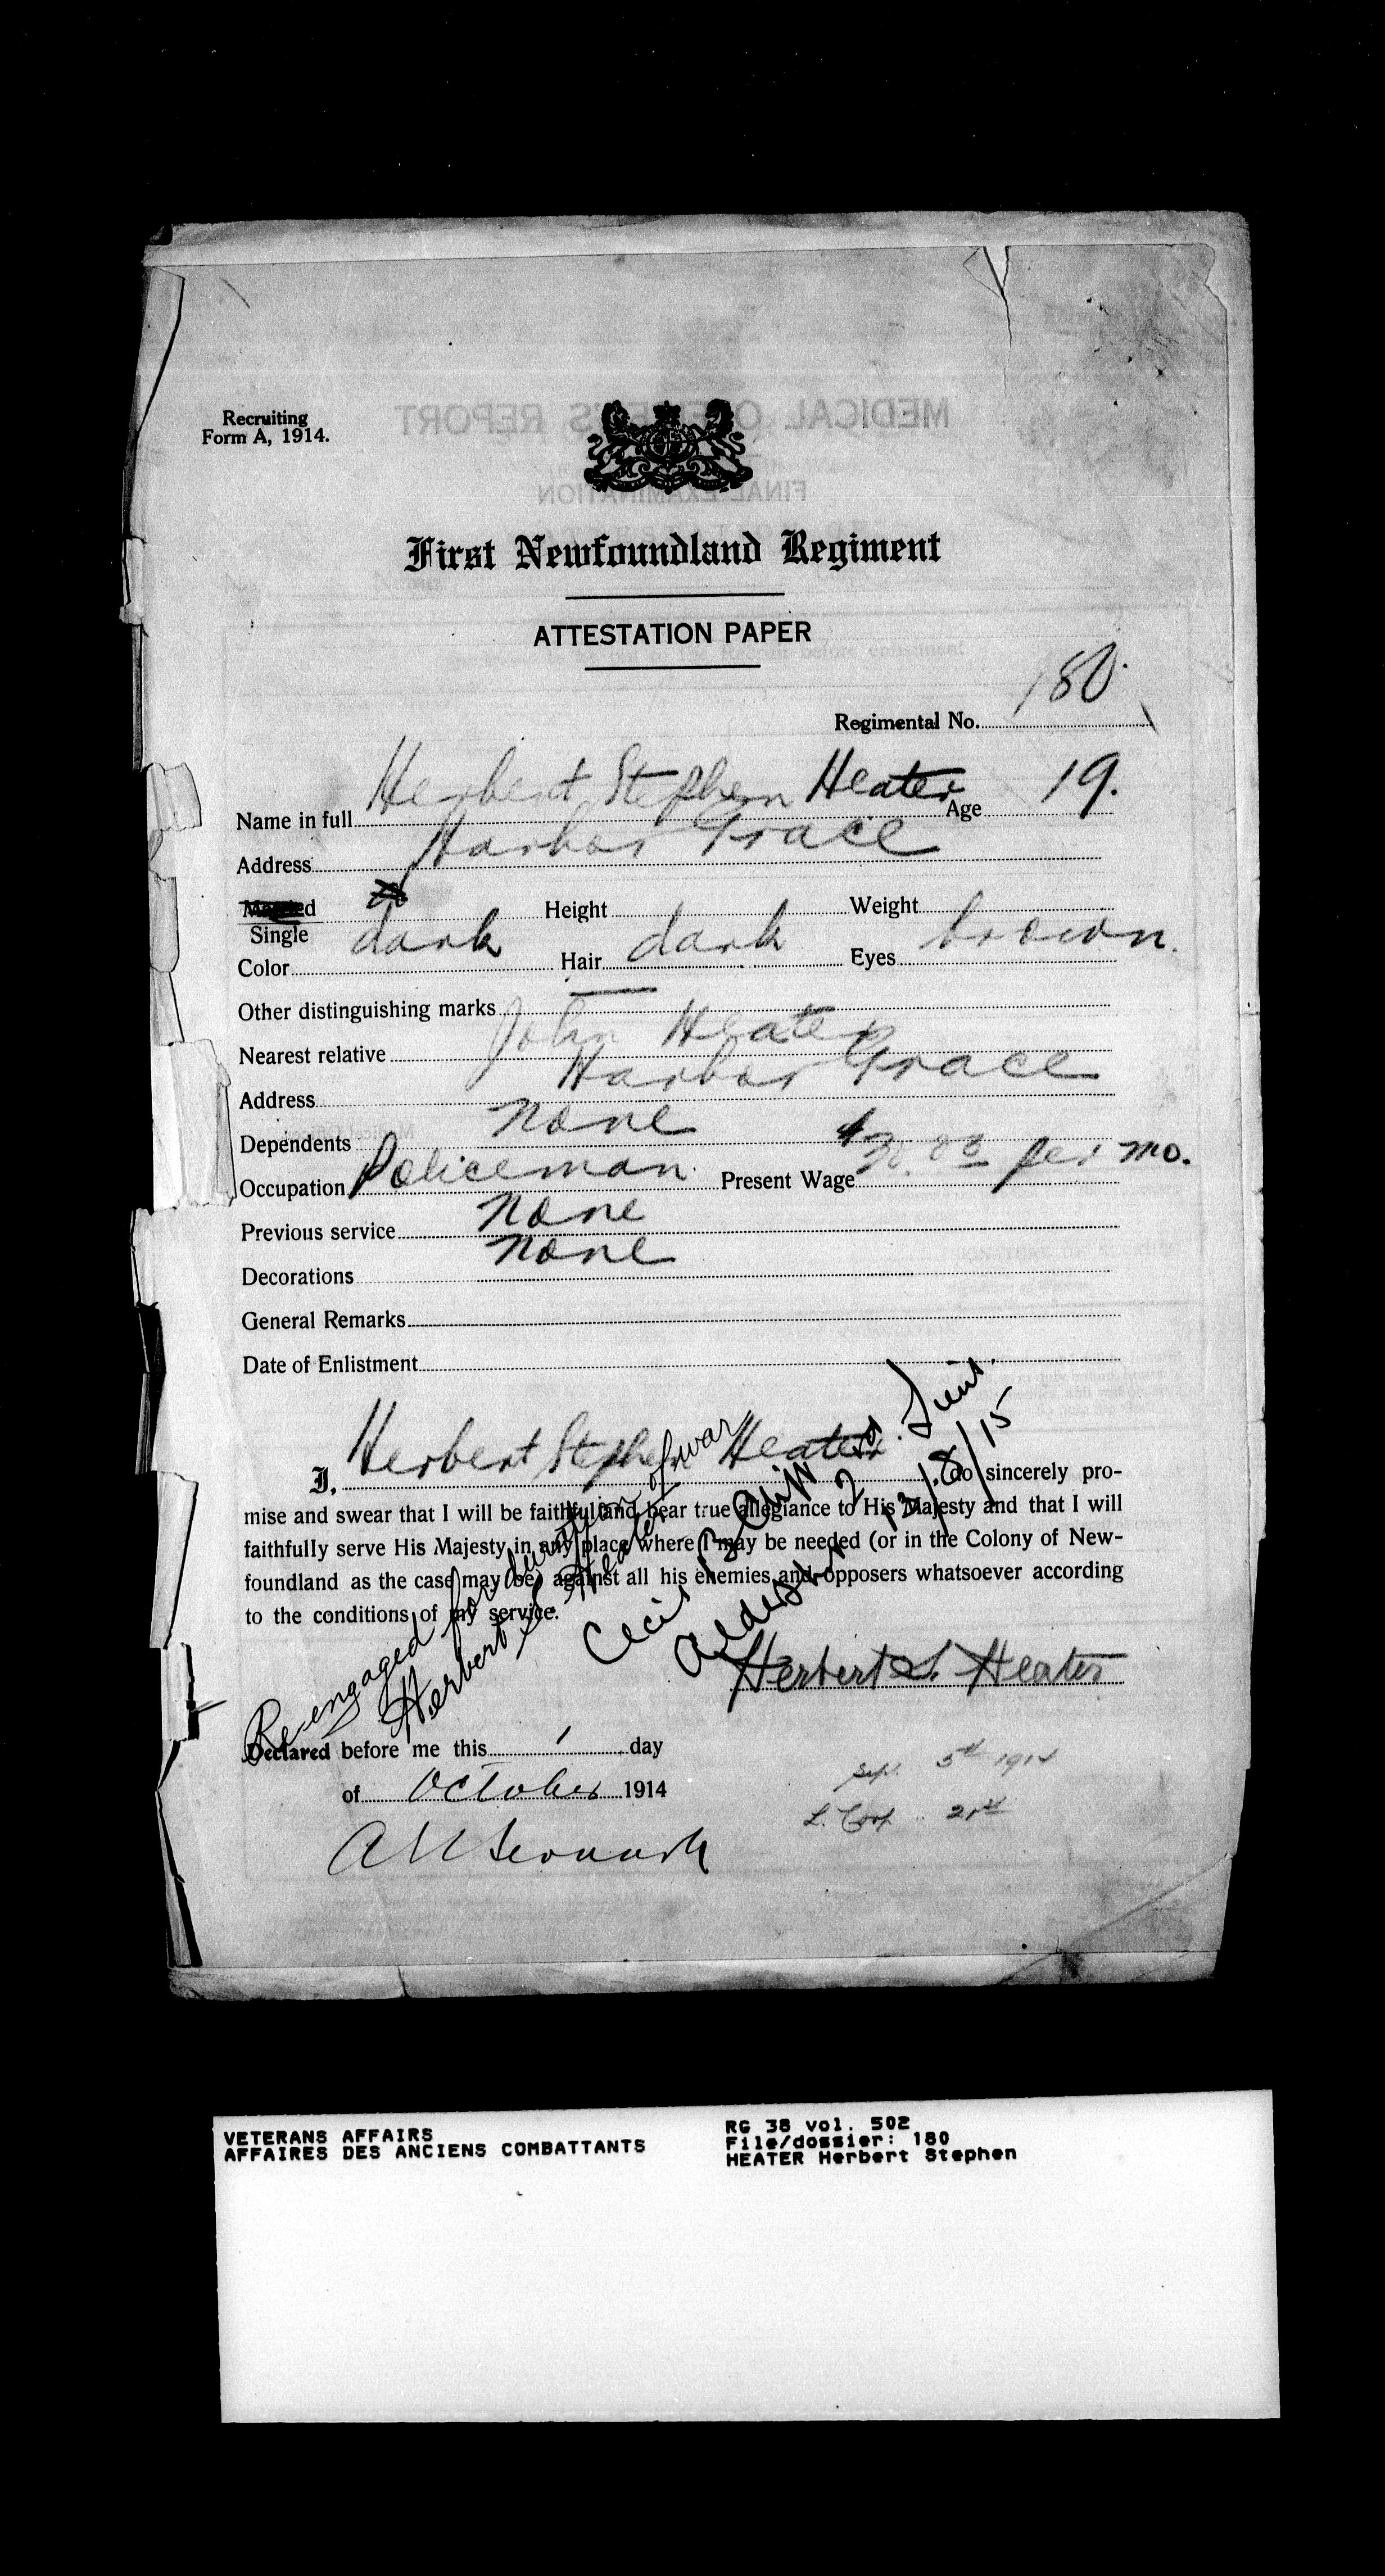 Recruiting
Form A, 1914.
MEDICAL OFFICER'S REPORT
FINAL EXAMINATION
First Newfoundland Regiment
ATTESTATION PAPER
Regimental No. 180
Name in full Herbert Stephen Heater Age 19.
Address Harbor Grace
Married
Single Height Weight
Color dark Hair dark Eyes brown.
Other distinguishing marks —
Nearest relative John Heater
Address Harbor Grace
Dependents None
Occupation Policeman Present Wage per mo.
Previous service None
Decorations None
General Remarks
Date of Enlistment
I, Herbert Stephen Heater do sincerely pro-
mise and swear that I will be faithful and bear true allegiance to His Majesty and that I will
faithfully serve His Majesty in any place where I may be needed (or in the Colony of New-
foundland as the case may be) against all his enemies and opposers whatsoever according
to the conditions of my service.
Re-engaged for duration of war
Herbert S. Heater
Cecil B Clift 2nd Lieut.
Aldershot 13/8/15
Herbert S. Heater
Declared before me this 1 day
of October 1914
Sept. 5th 1914
L. Corp. 21st
VETERANS AFFAIRS
AFFAIRES DES ANCIENS COMBATTANTS
RG 38 vol. 502
File/dossier: 180
HEATER Herbert Stephen